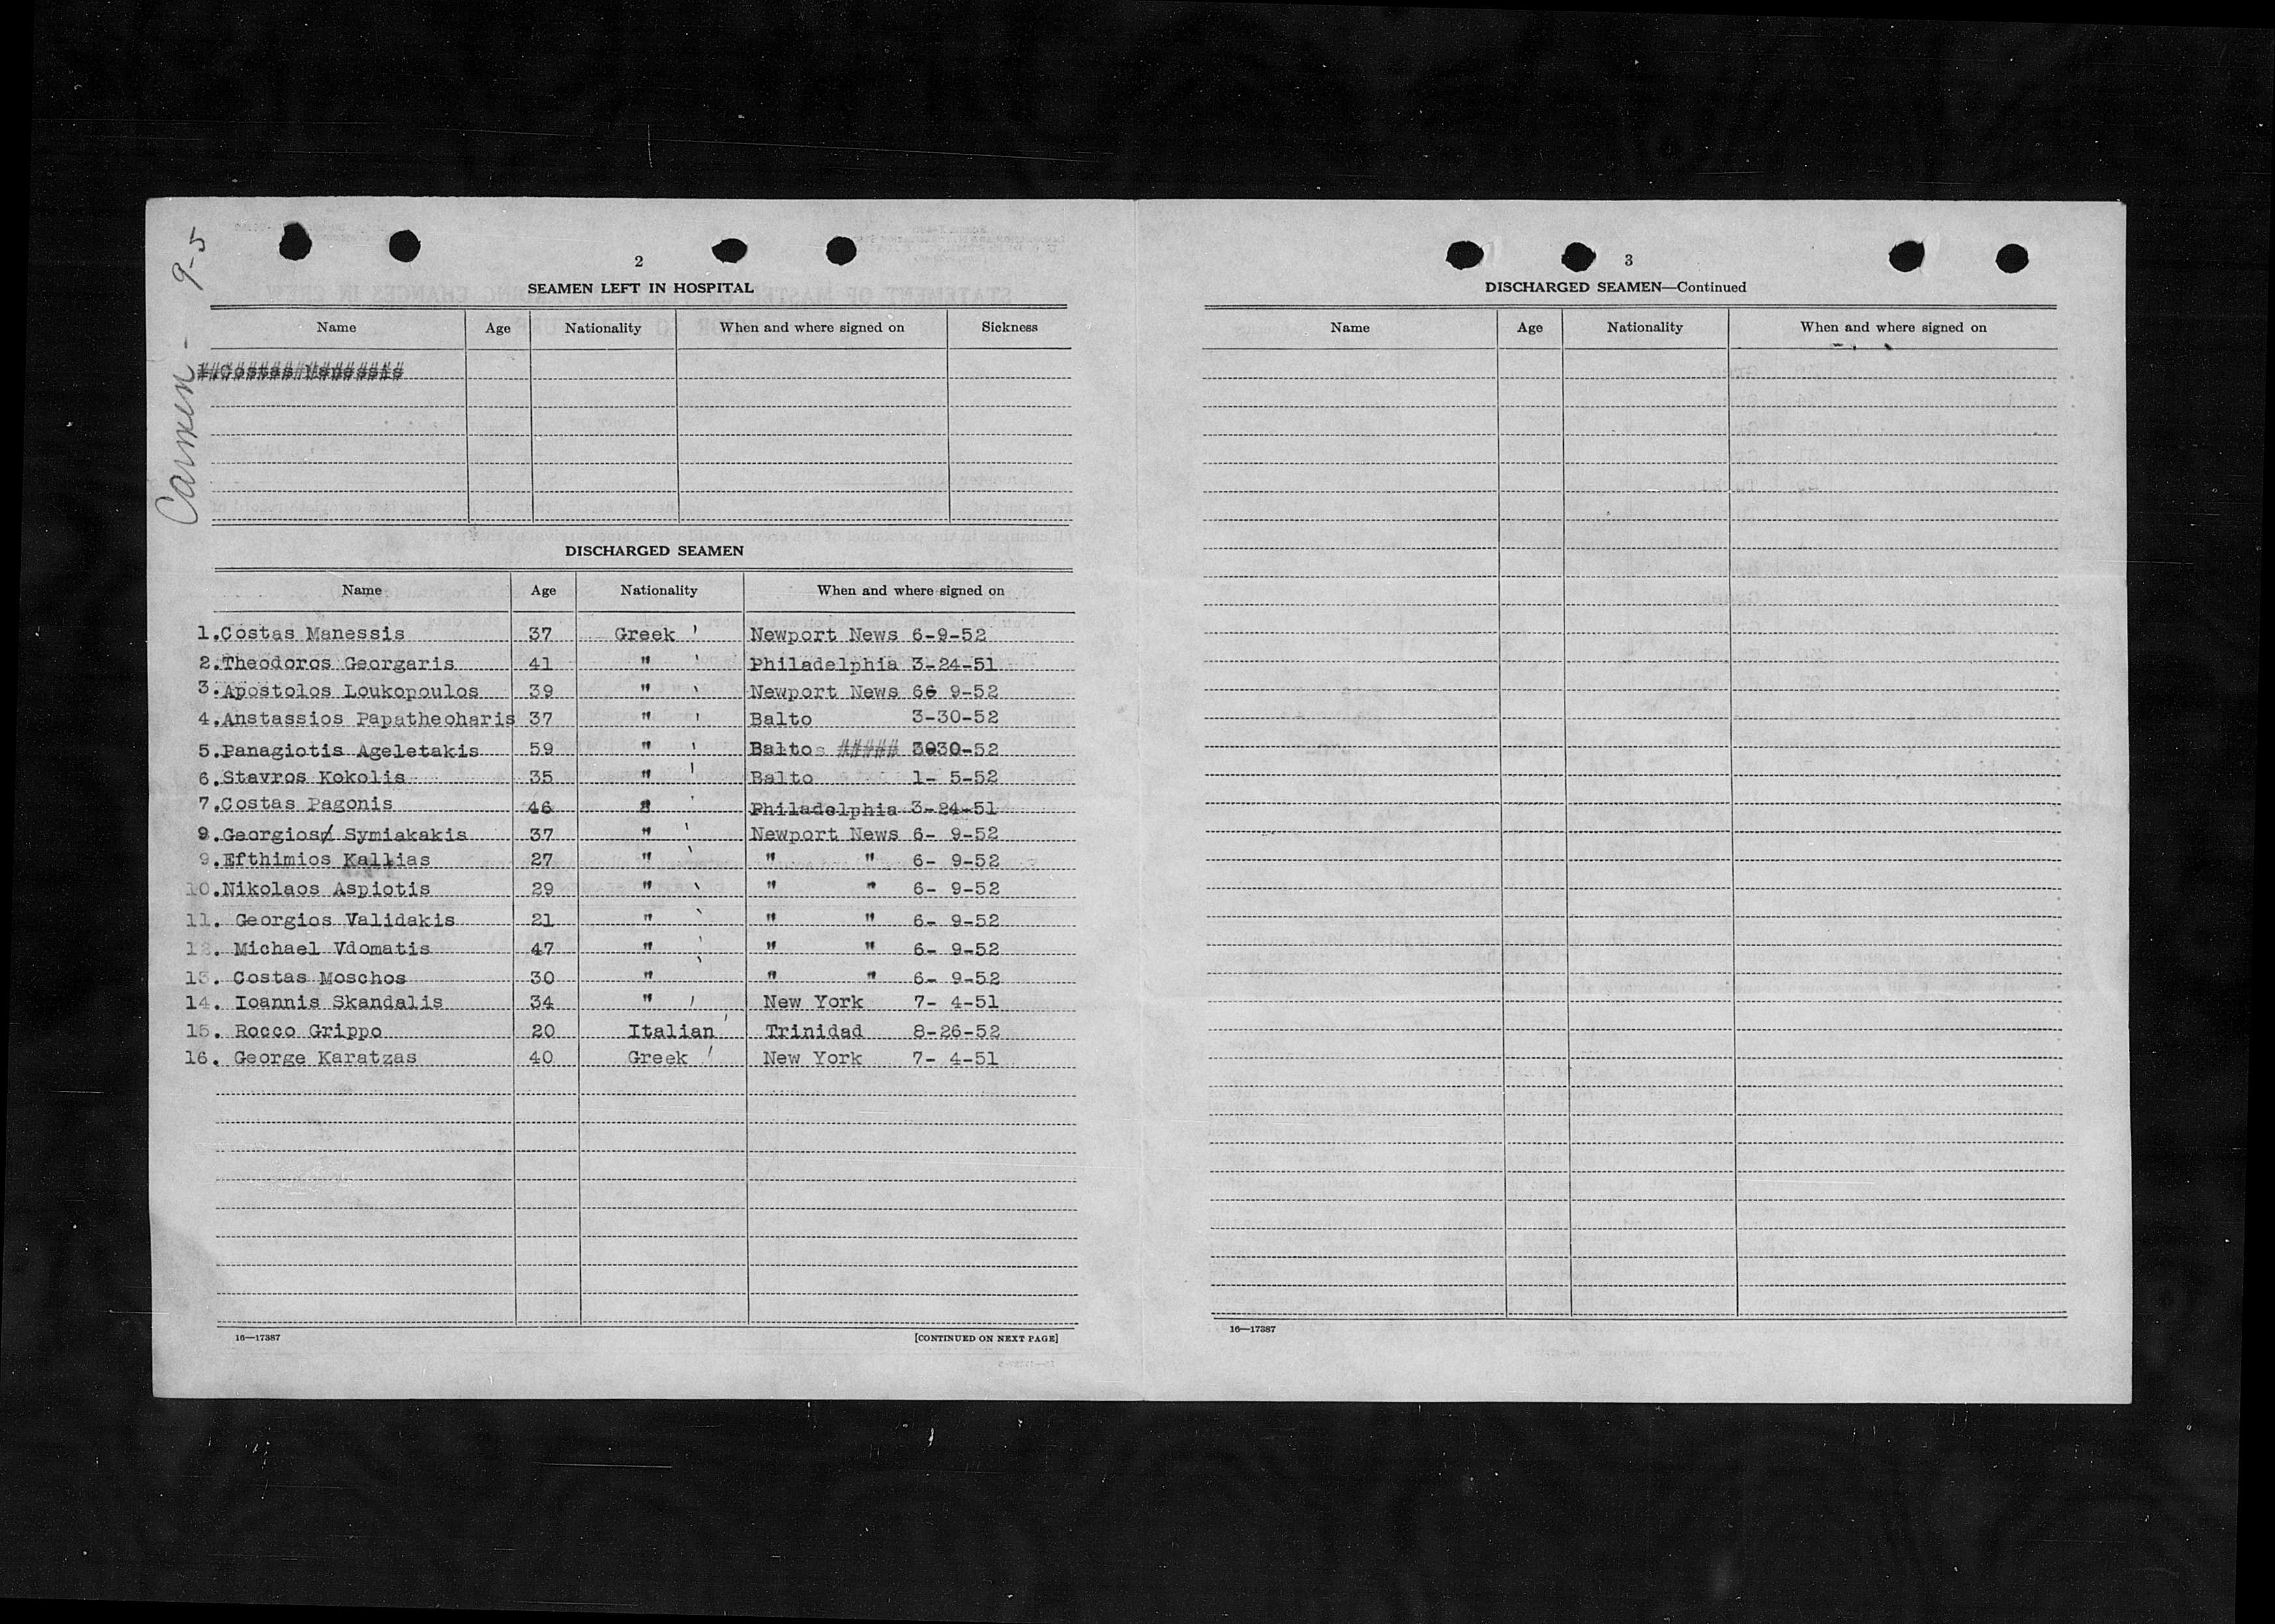 Carmen - 9-5
2
SEAMEN LEFT IN HOSPITAL
Name Age Nationality When and where signed on Sickness
1.Costas Manessis
DISCHARGED SEAMEN
Name Age Nationality When and where signed on
1.Costas Manessis 37 Greek Newport News 6-9-52
2.Theodoros Georgaris 41 " Philadelphia 3-24-51
3.Apostolos Loukopoulos 39 " Newport News 66 9-52
4.Anstassios Papatheoharis 37 " Balto 3-30-52
5.Panagiotis Ageletakis 59 " Baltos ##### 3030-52
6.Stavros Kokolis 35 " Balto 1- 5-52
7.Costas Pagonis 46 " Philadelphia 3-24-51
9.Georgios Symiakakis 37 " Newport News 6- 9-52
9.Efthimios Kallias 27 " " " 6- 9-52
10.Nikolaos Aspiotis 29 " " " 6- 9-52
11. Georgios Validakis 21 " " " 6- 9-52
12. Michael Vdomatis 47 " " " 6- 9-52
13. Costas Moschos 30 " " " 6- 9-52
14. Ioannis Skandalis 34 " New York 7- 4-51
15. Rocco Grippo 20 Italian Trinidad 8-26-52
16. George Karatzas 40 Greek New York 7- 4-51
16—17387 [CONTINUED ON NEXT PAGE]
3
DISCHARGED SEAMEN—Continued
Name Age Nationality When and where signed on
16—17387